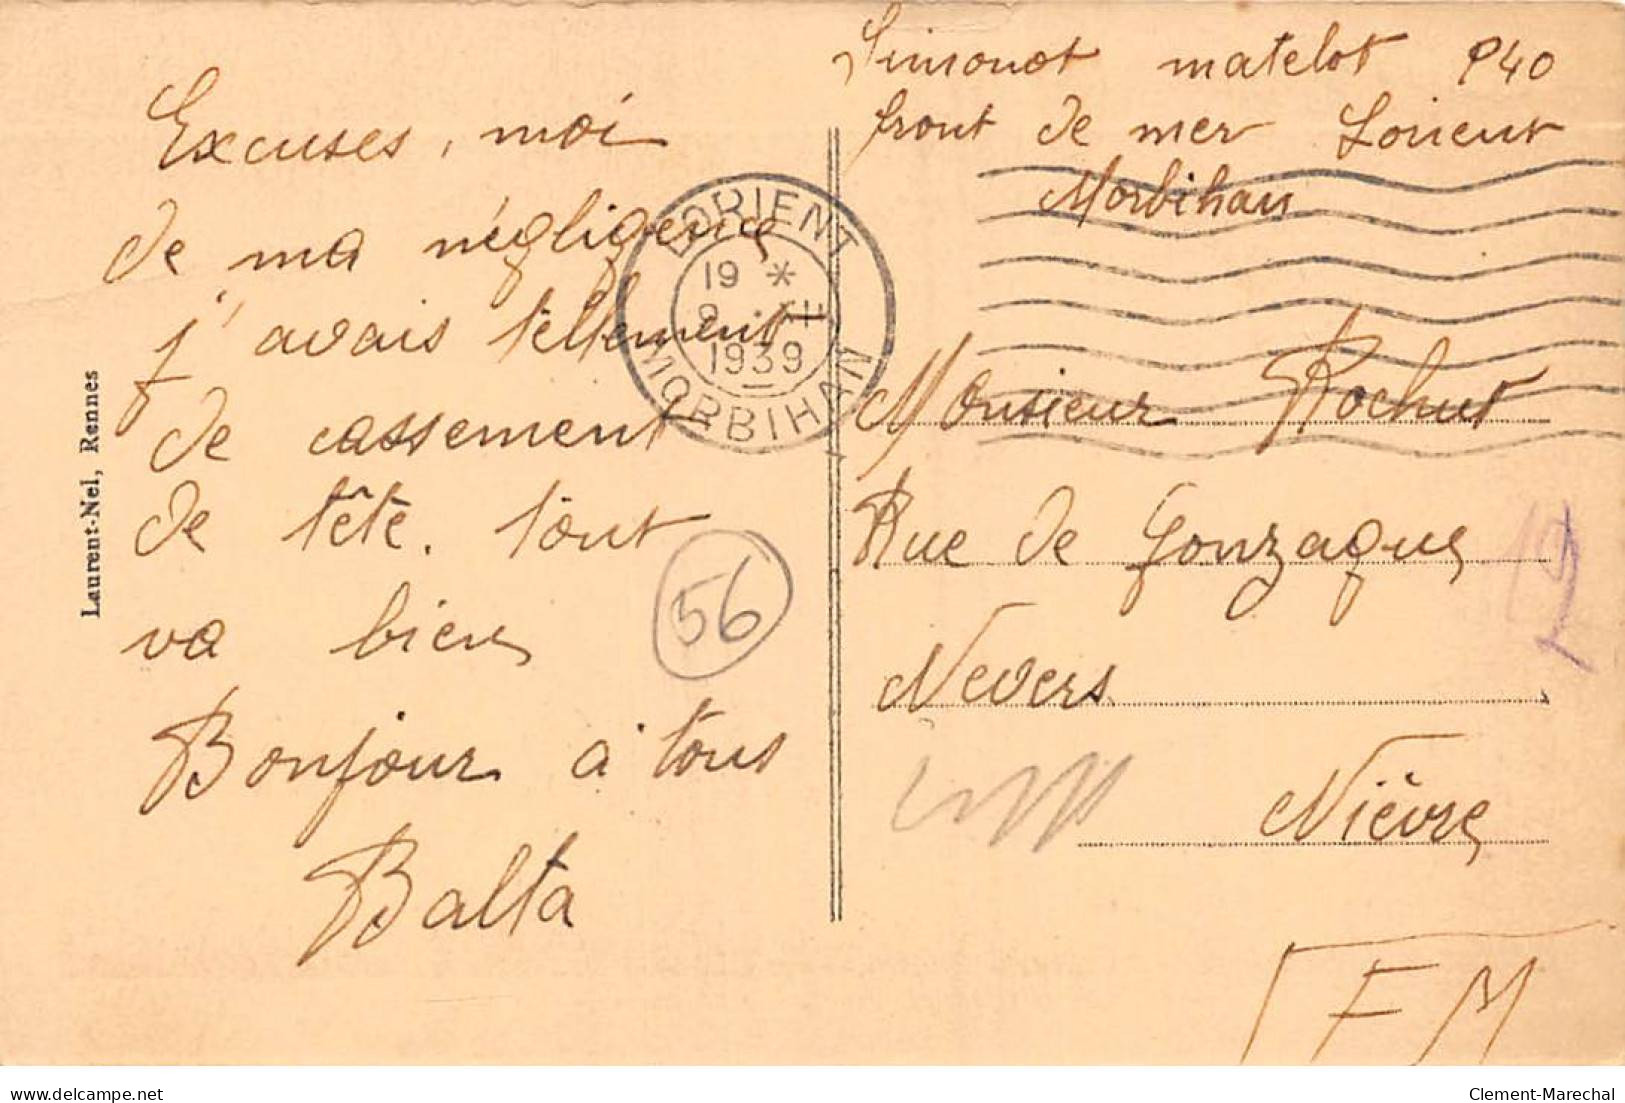 Simonot matelot P40
front de mer Lorient
Morbihan
Excuses, moi
de ma négligence
j'avais tellement
de cassement
de tête. tout
va bien
Bonjour à tous
Balta
LORIENT
19 *
1939
MORBIHAN
56
Monsieur Rochut
Rue de Gonzague
Nevers
Nièvre
FM
Laurent-Nel, Rennes
delcampe.net
Clement-Marechal